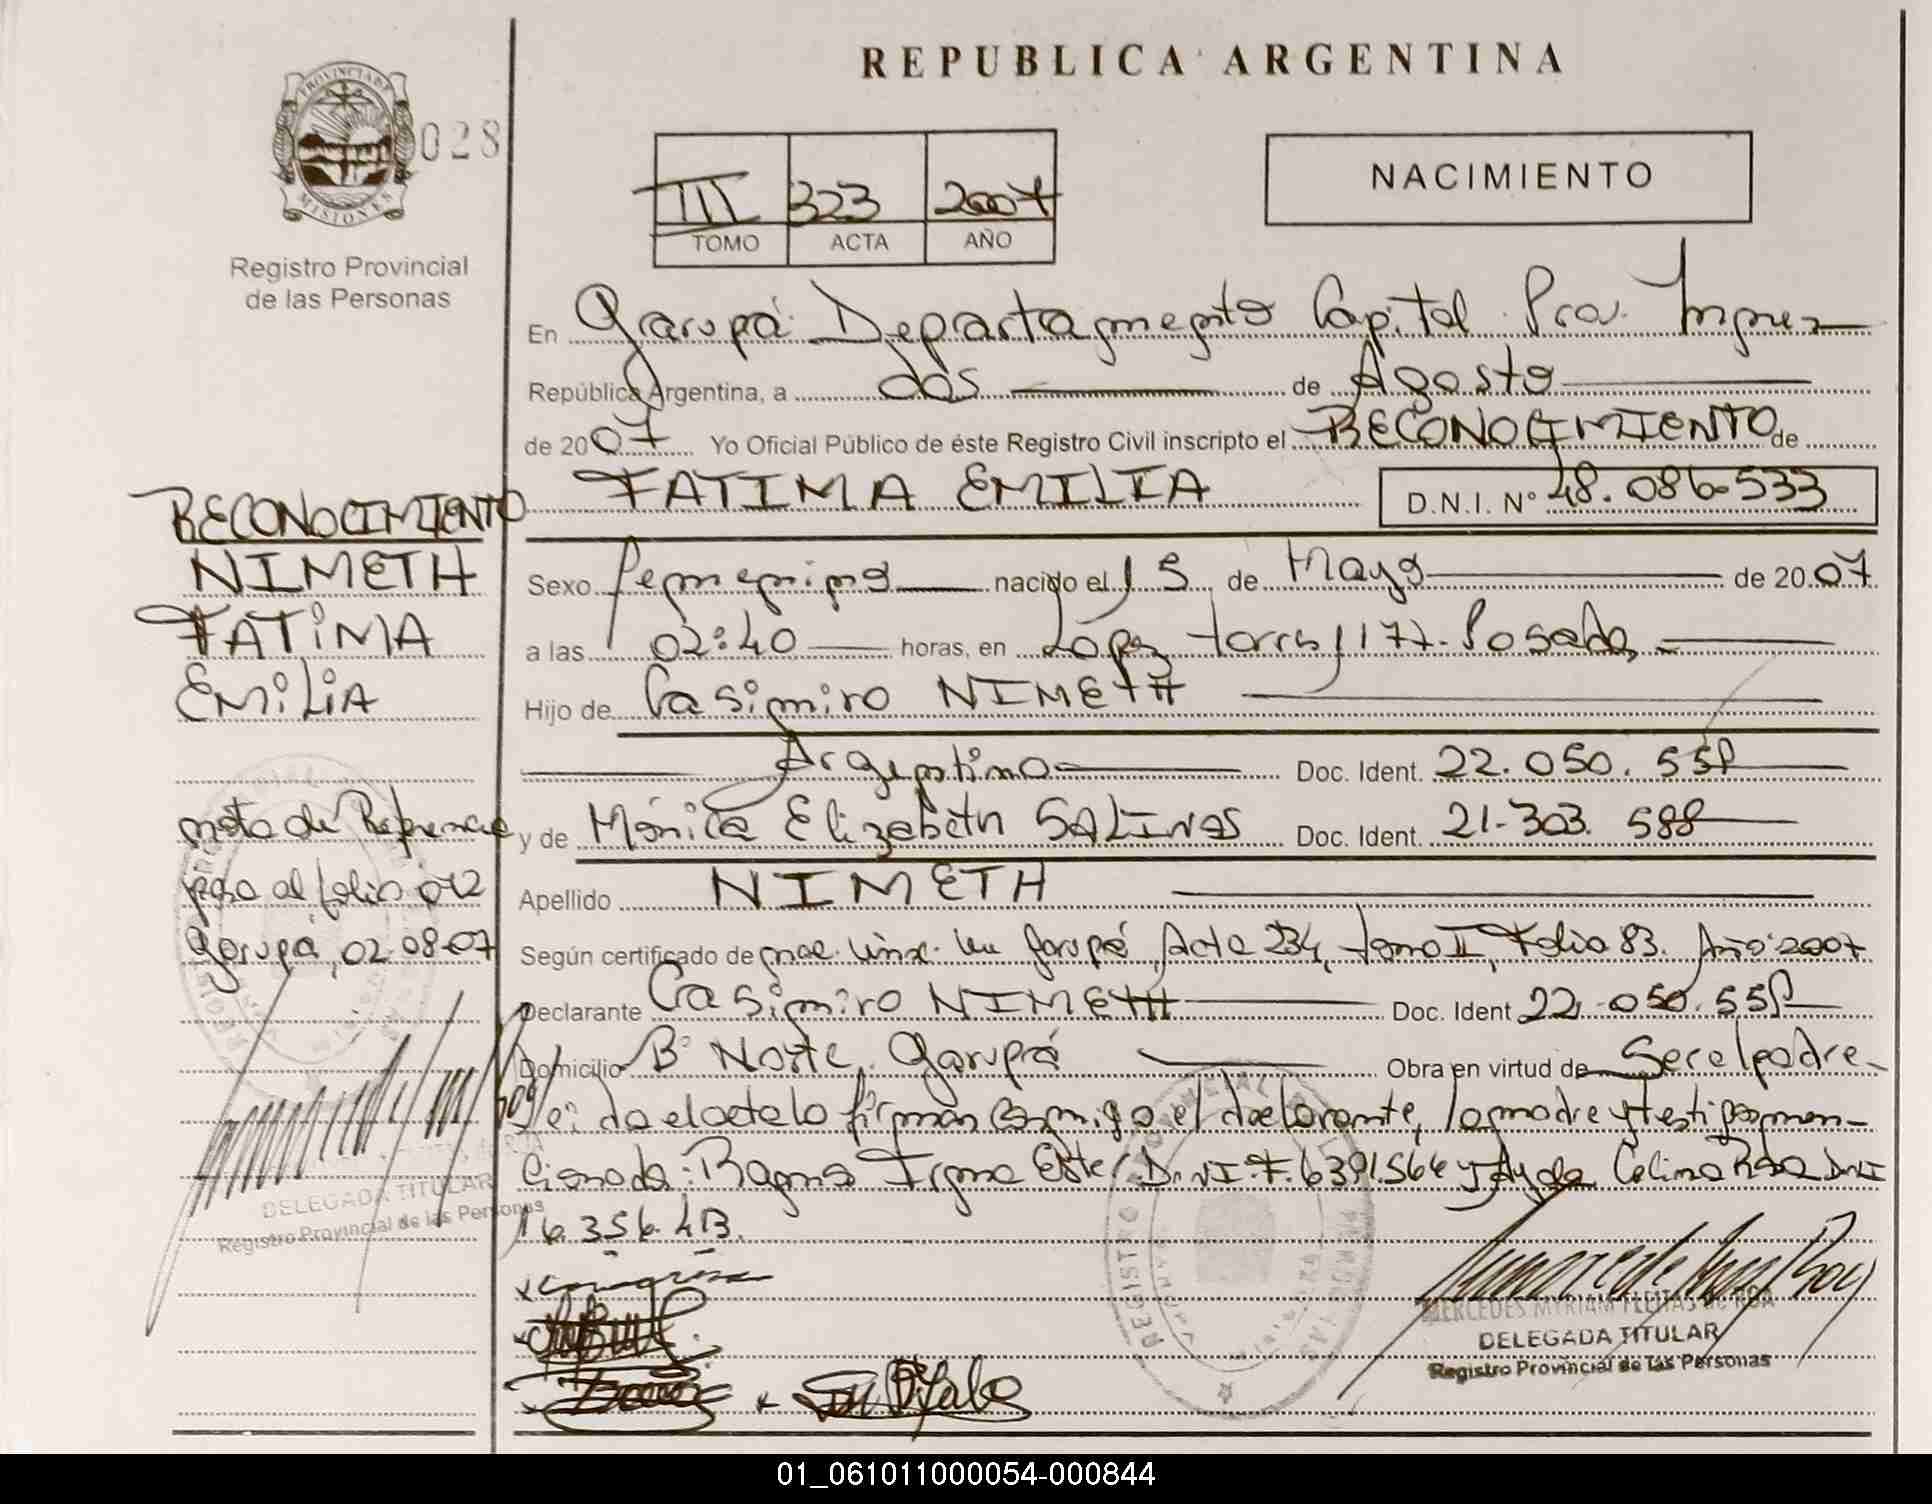 REPUBLICA ARGENTINA
PROVINCIA DE
MISIONES
028
Registro Provincial
de las Personas
III 323 2007
TOMO ACTA AÑO
NACIMIENTO
En Garupá Departamento Capital Prov. Misiones
República Argentina, a dos de Agosto
de 2007 Yo Oficial Público de éste Registro Civil inscripto el RECONOCIMIENTO de
FATIMA EMILIA D.N.I. Nº 48.086.533
Sexo Femenino nacido el 15 de Mayo de 2007
a las 02:40 horas, en López Torres 1177 - Posadas
Hijo de Casimiro NIMETH
Argentino Doc. Ident. 22.050.55
y de Mónica Elizabeth SALINAS Doc. Ident. 21.303.588
Apellido NIMETH
Según certificado de Garupá, Acta 234, tomo II, Folio 83. Año 2007
Declarante Casimiro NIMETH Doc. Ident 22.050.55
Domicilio Bº Norte. Garupá Obra en virtud de Ser el padre
Leída el acta lo firman conmigo el declarante, la madre y testigos men-
cionada: Irma Ester D.N.I. F. 6391.564 y Celina Rosa DNI
16.356.413.
RECONOCIMIENTO
NIMETH
FATiMA
EMiLiA
nota de Referencia
pasa al folio 012
Garupá, 02-08-07
DELEGADA TITULAR
Registro Provincial de las Personas
MERCEDES MYRIAM FLEITAS de ROA
DELEGADA TITULAR
Registro Provincial de las Personas
01_061011000054-000844